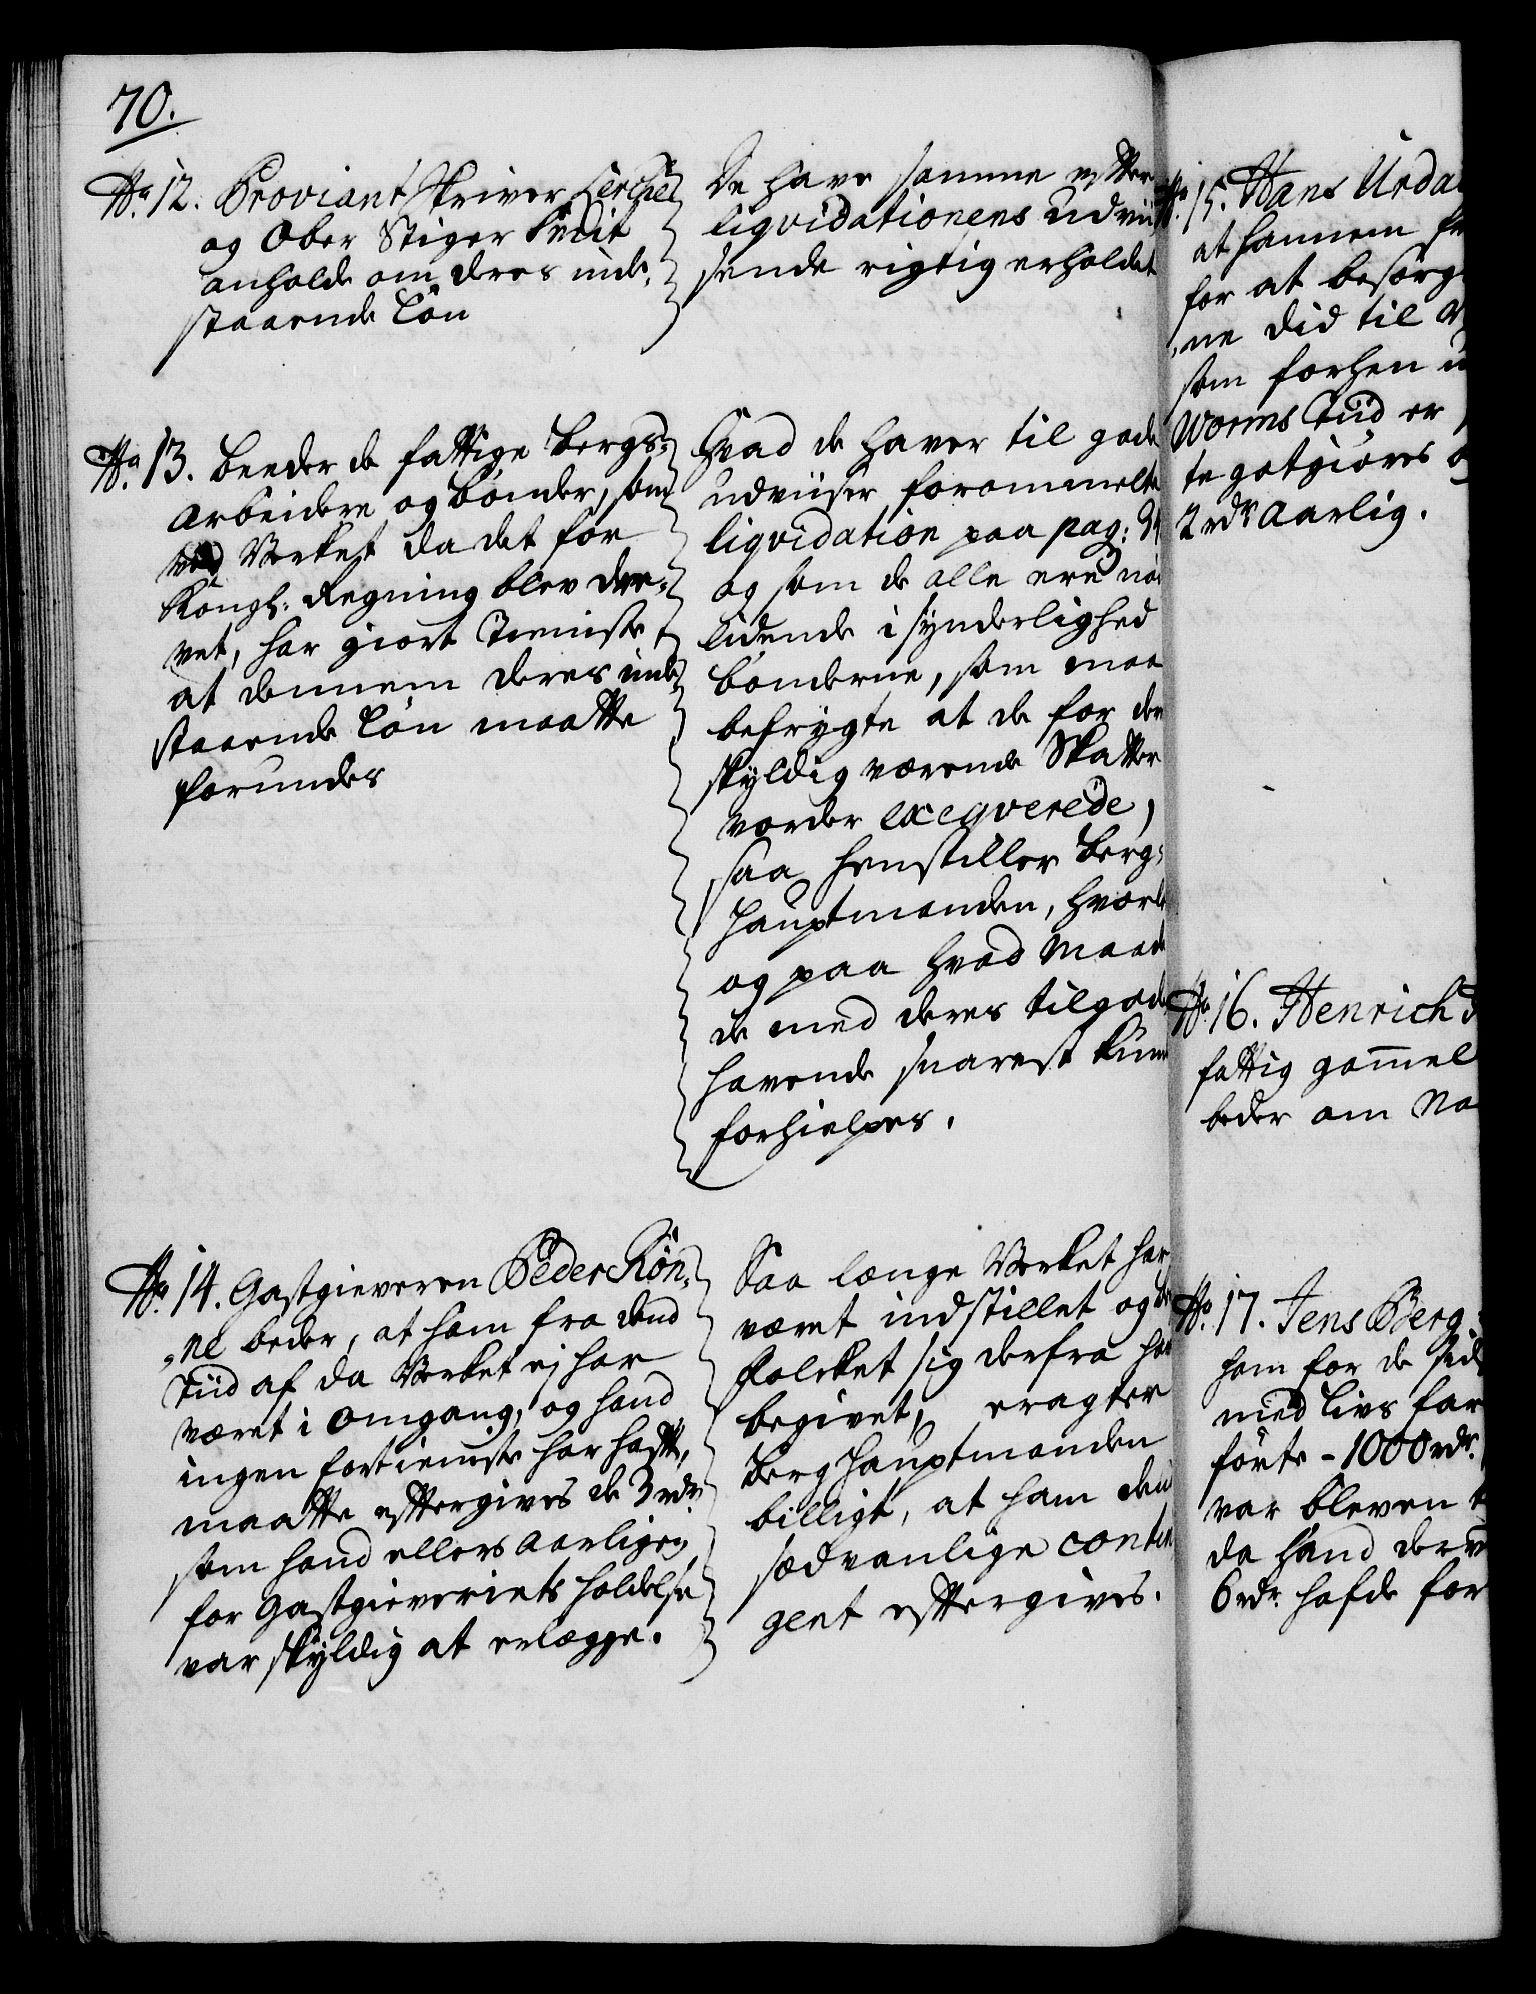 70.
No. 12. Proviant Skriver Lerche
og Ober Stiger Knit
anholde om deres inde-
staaende Løn
De have samme efter
liqvidationens Udvii
sende rigtig erholdet
No. 13. beeder de fattige Bergs-
Arbeidere og Bønder, som
ved Verket da det for
Kongl: Regning blev dre-
vet, har giort Tieniste,
at dennem deres inde
staaende Løn maatte
forundes
Hvad de haver til gode
udviiser forommelte
liqvidation paa pag:
og som de alle ere nø
lidende i synderlighed
Bønderne, som maa
befrygte at de for der
skyldig værende Skatter
vorder exeqverede,
saa henstiller Berg-
Hauptmanden, hvorle
og paa hvad Maade
de med deres tilgode
havende snarest kun
forhielpes.
No. 14. Gastgieveren Peder Røn-
-ne beder, at ham fra dend
Tiid af da Verket ej har
været i Omgang, og hand
ingen fortieniste har hafft,
maatte efftergives de 3 rdr
som hand ellers Aarligen
for Gastgieveriets holdelse
var skyldig at erlægge.
Saa længe Verket har
været indstillet og
Folcket sig derfra har
begivet, eragter
Berg Hauptmanden
billigt, at ham den
sædvanlige contin
gent efftergives.
15. Hans Urda
at hannem
for at besørg
-ne did til
som forhen
Worms Tiid er
te gotgiøres
2 rdr Aarlig.
No. 16. Henrich
fattig gammel
beder om
No. 17. Jens Berg
ham for de sid
med Livs far
førte - 1000 rdr.
var bleven
da hand der
6 rdr. hafde for